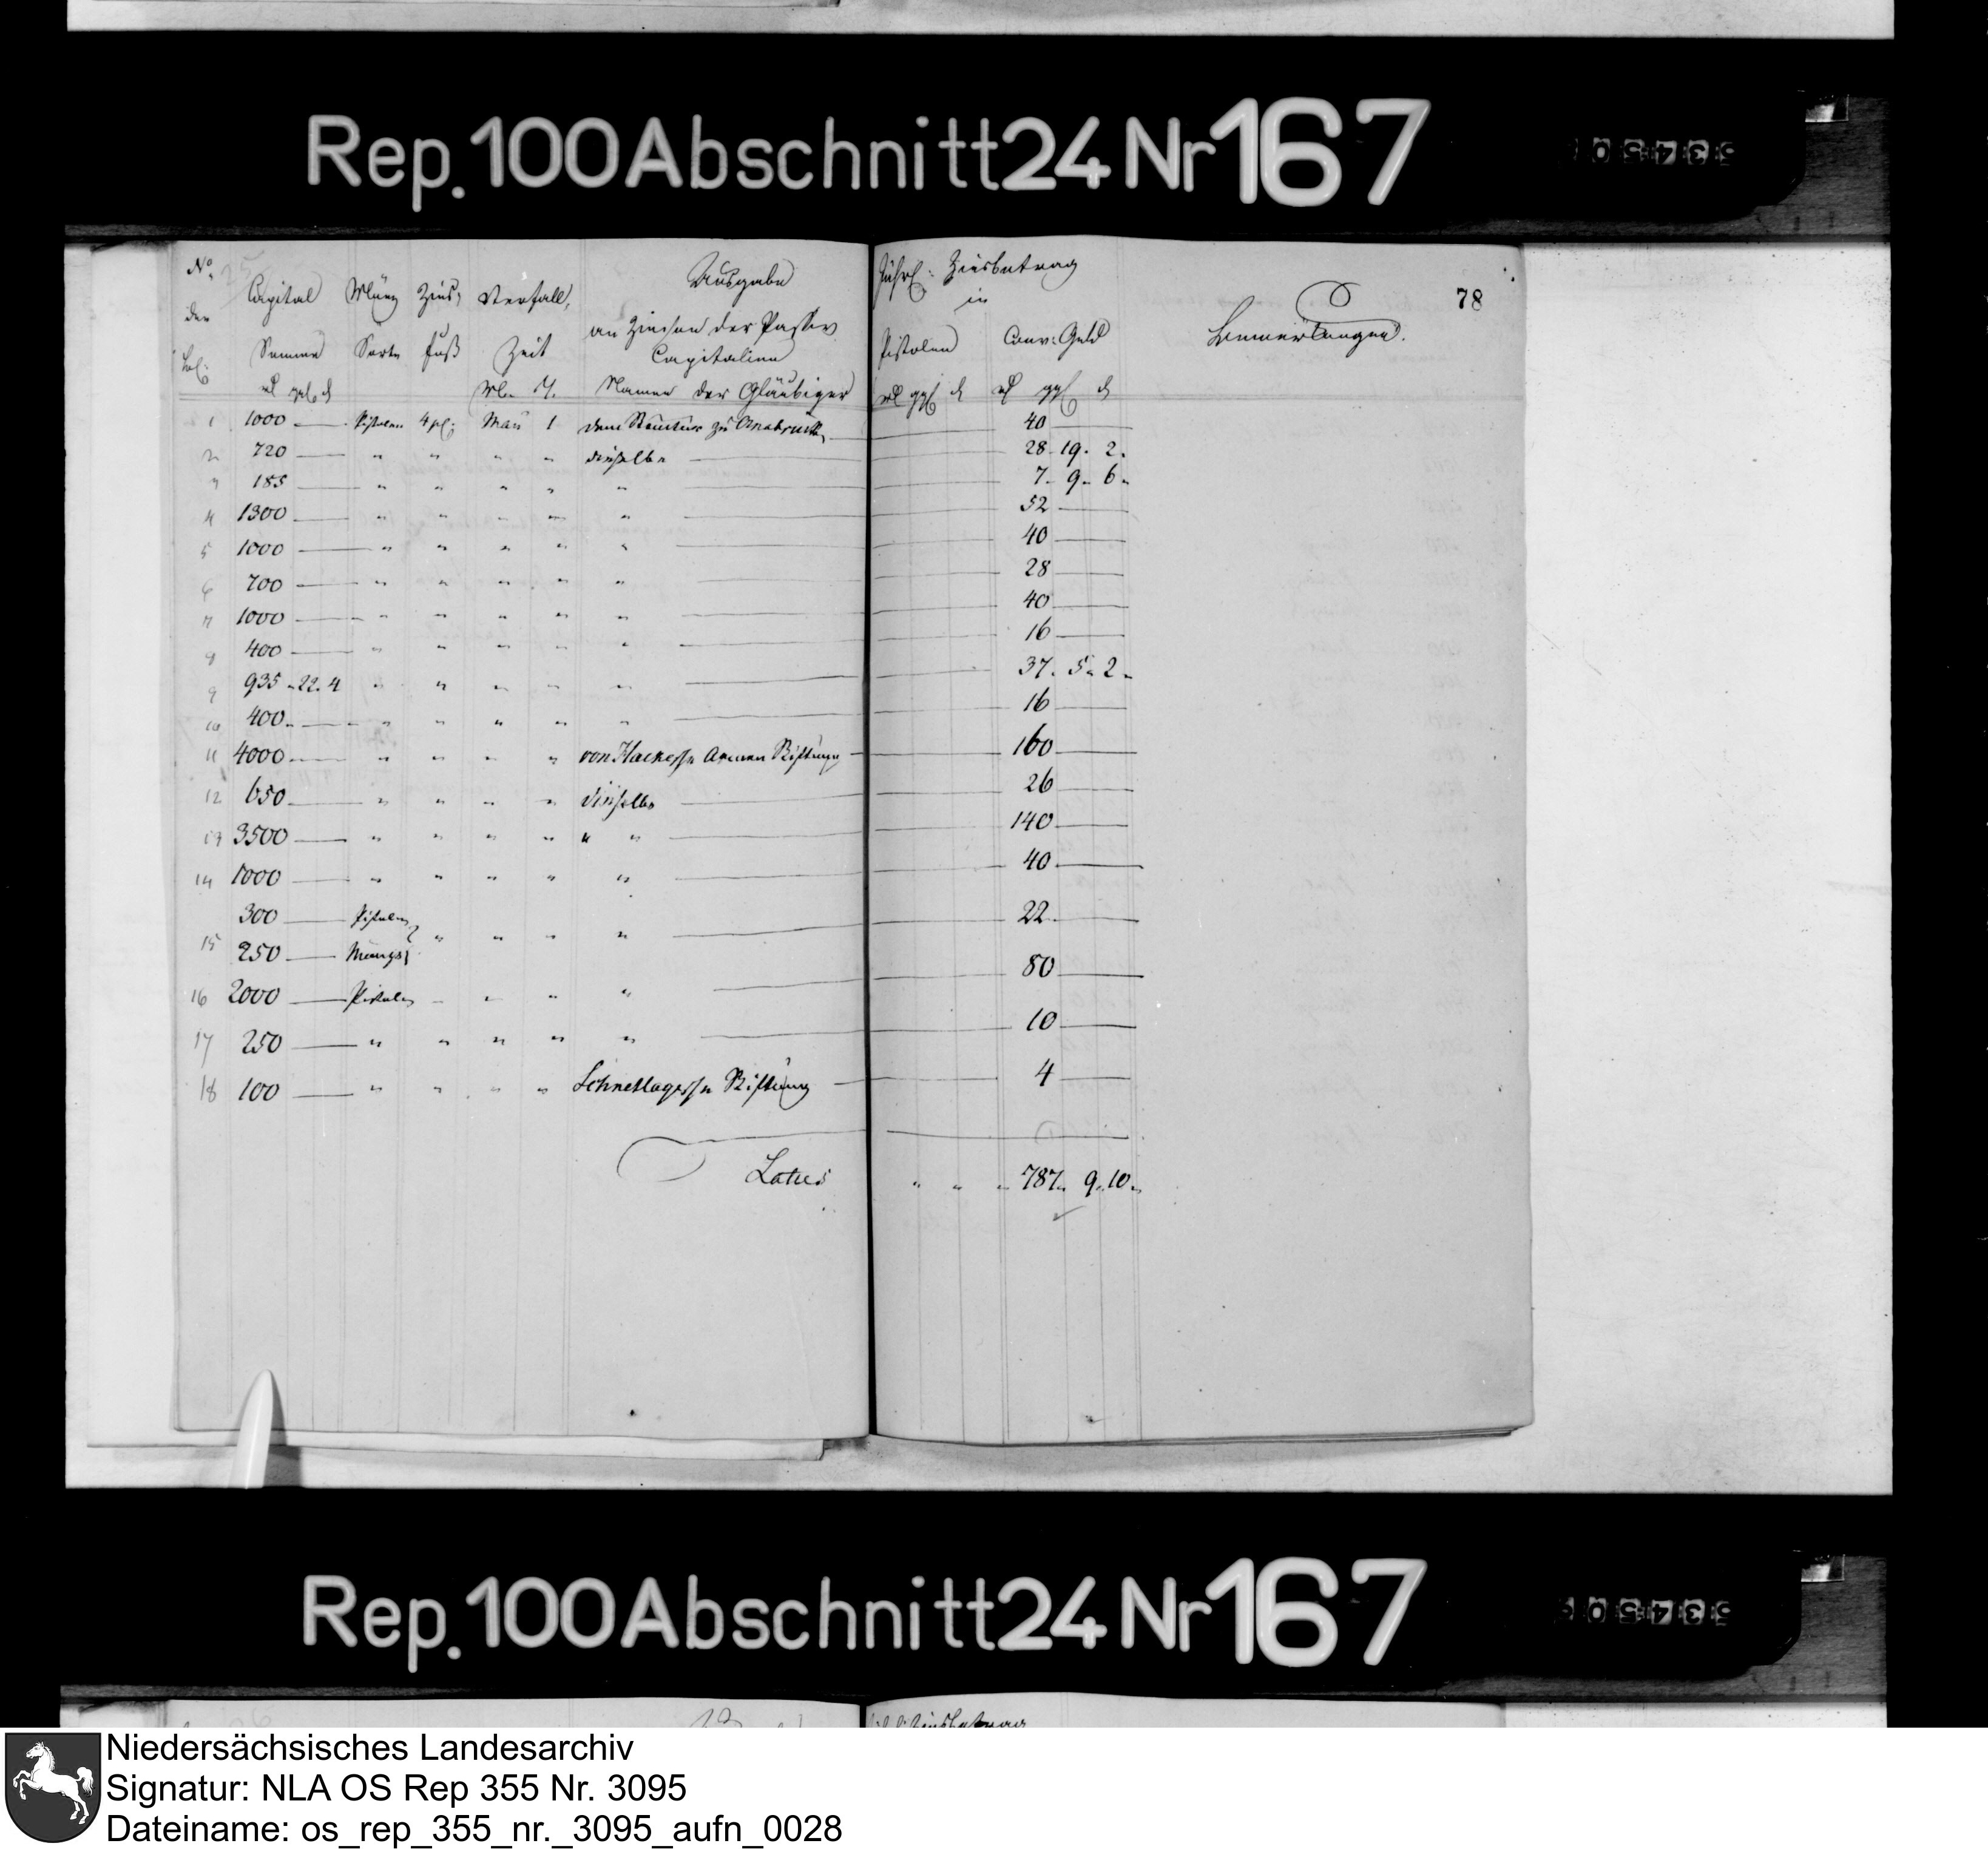 Rep. 100 Abschnitt 24 Nr 167
53450
78
No. Capital Münz Zins, Verfall, Ausgabe Jährl: Zinsbetrag
der Summe Sorte fuß Zeit an Zinsen der Passiv in
Bel: Capitalien Pistolen Conv: Geld Bemerkungen.
rl ggl d M. T. Namen der Gläubiger rl ggl d rl ggl d
1 1000 Pistolen 4 pC: Mai 1 dem zu Osnabrück, 40
2 720 " " " " dieselbe 28. 19. 2.
3 185 " " " " " 7. 9. 6.
4 1300 " " " " " 52
5 1000 " " " " " 40
6 700 " " " " " 28
7 1000 " " " " " 40
8 400 " " " " " 16
9 935. 22. 4 " " " " " 37. 5. 2.
10 400. " " " " " 16
11 4000 " " " " von Hakesche Armen Stiftung 160
12 650 " " " " dieselbe 26
13 3500 " " " " " " 140
14 1000 " " " " " 40
300 Pistolen
15 " " " " 22.
250 Münze
16 2000 Pistolen " " " " 80
17 250 " " " " " 10
18 100 " " " " Schnetlagesche Stiftung 4
Latus " " " 787. 9. 10.
Rep. 100 Abschnitt 24 Nr 167
53450
Zinsbetrag
Niedersächsisches Landesarchiv
Signatur: NLA OS Rep 355 Nr. 3095
Dateiname: os_rep_355_nr._3095_aufn_0028